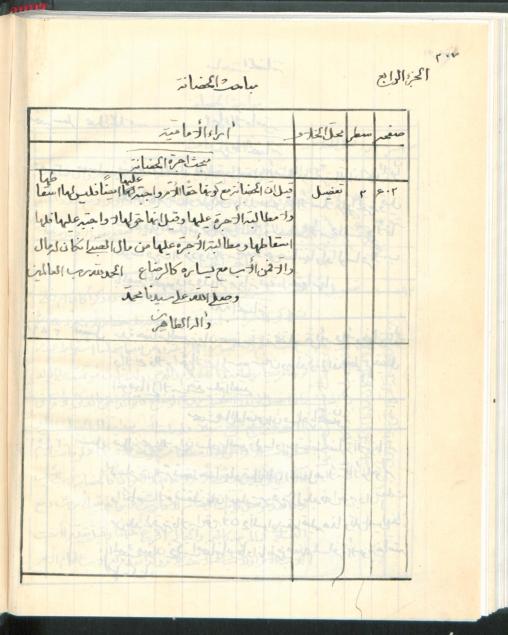 الجزء الرابع
مباحث الحضانة
صفحة سطر محل الخلاف آراء الإمامية
مبحث أجرة الحضانة
٦٠٢ ٢ تفضل قيل إن الحضانة مع كونها حقا لأم واجبة عليها أيضا فليس لها اسقاطها
ولا مطالبة الاجرة عليها وقيل انها حق لها لا واجبة عليها فلها
اسقاطها ومطالبة الأجرة عليها من مال الصبي إن كان له مال
والا فمن الأب مع يساره كالرضاع الحمد لله رب العالمين
وصلى الله على سيدنا محمد
وآله الطاهرين